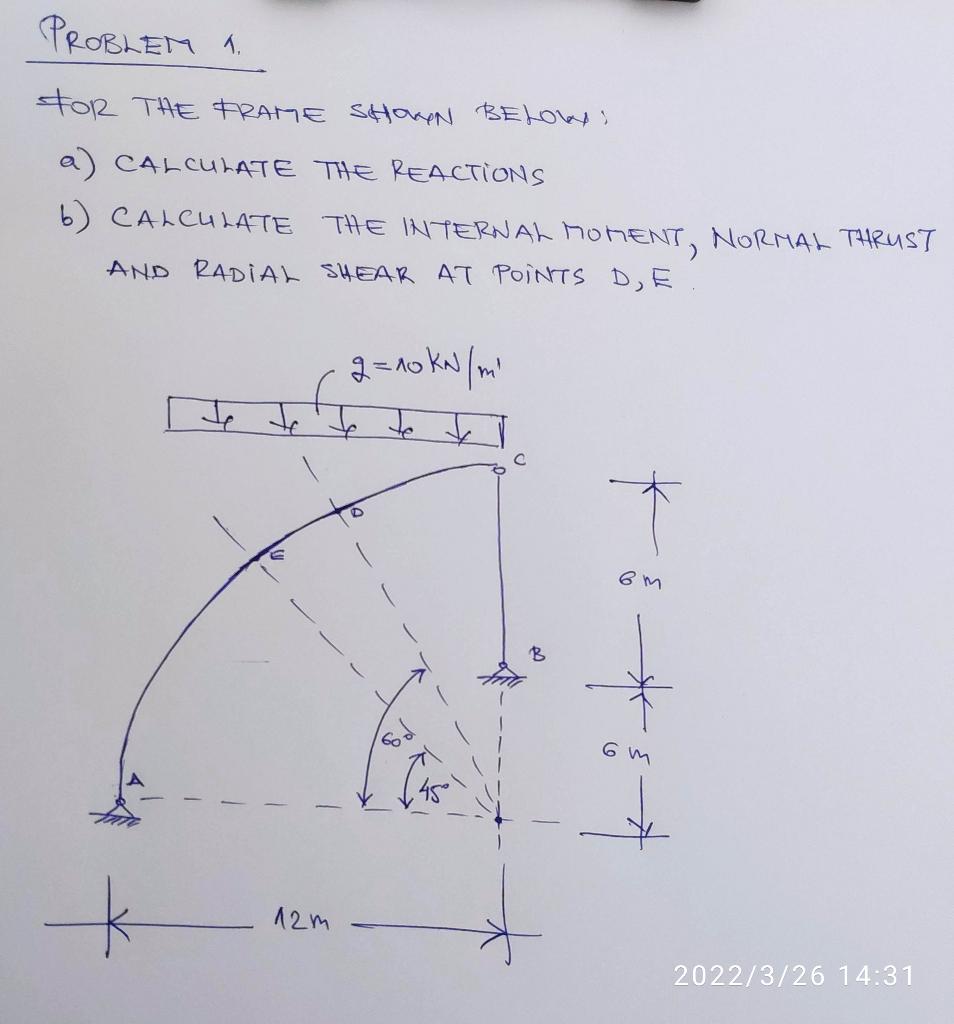 PROBLEM 1.
FOR THE FRAME SHOWN BELOW:
a) CALCULATE THE REACTIONS
b) CALCULATE THE INTERNAL MOMENT, NORMAL THRUST
AND RADIAL SHEAR AT POINTS D, E.
g=10kN/m'
C
D
E
6m
B
60°
6m
A
45°
12m
2022/3/26 14:31